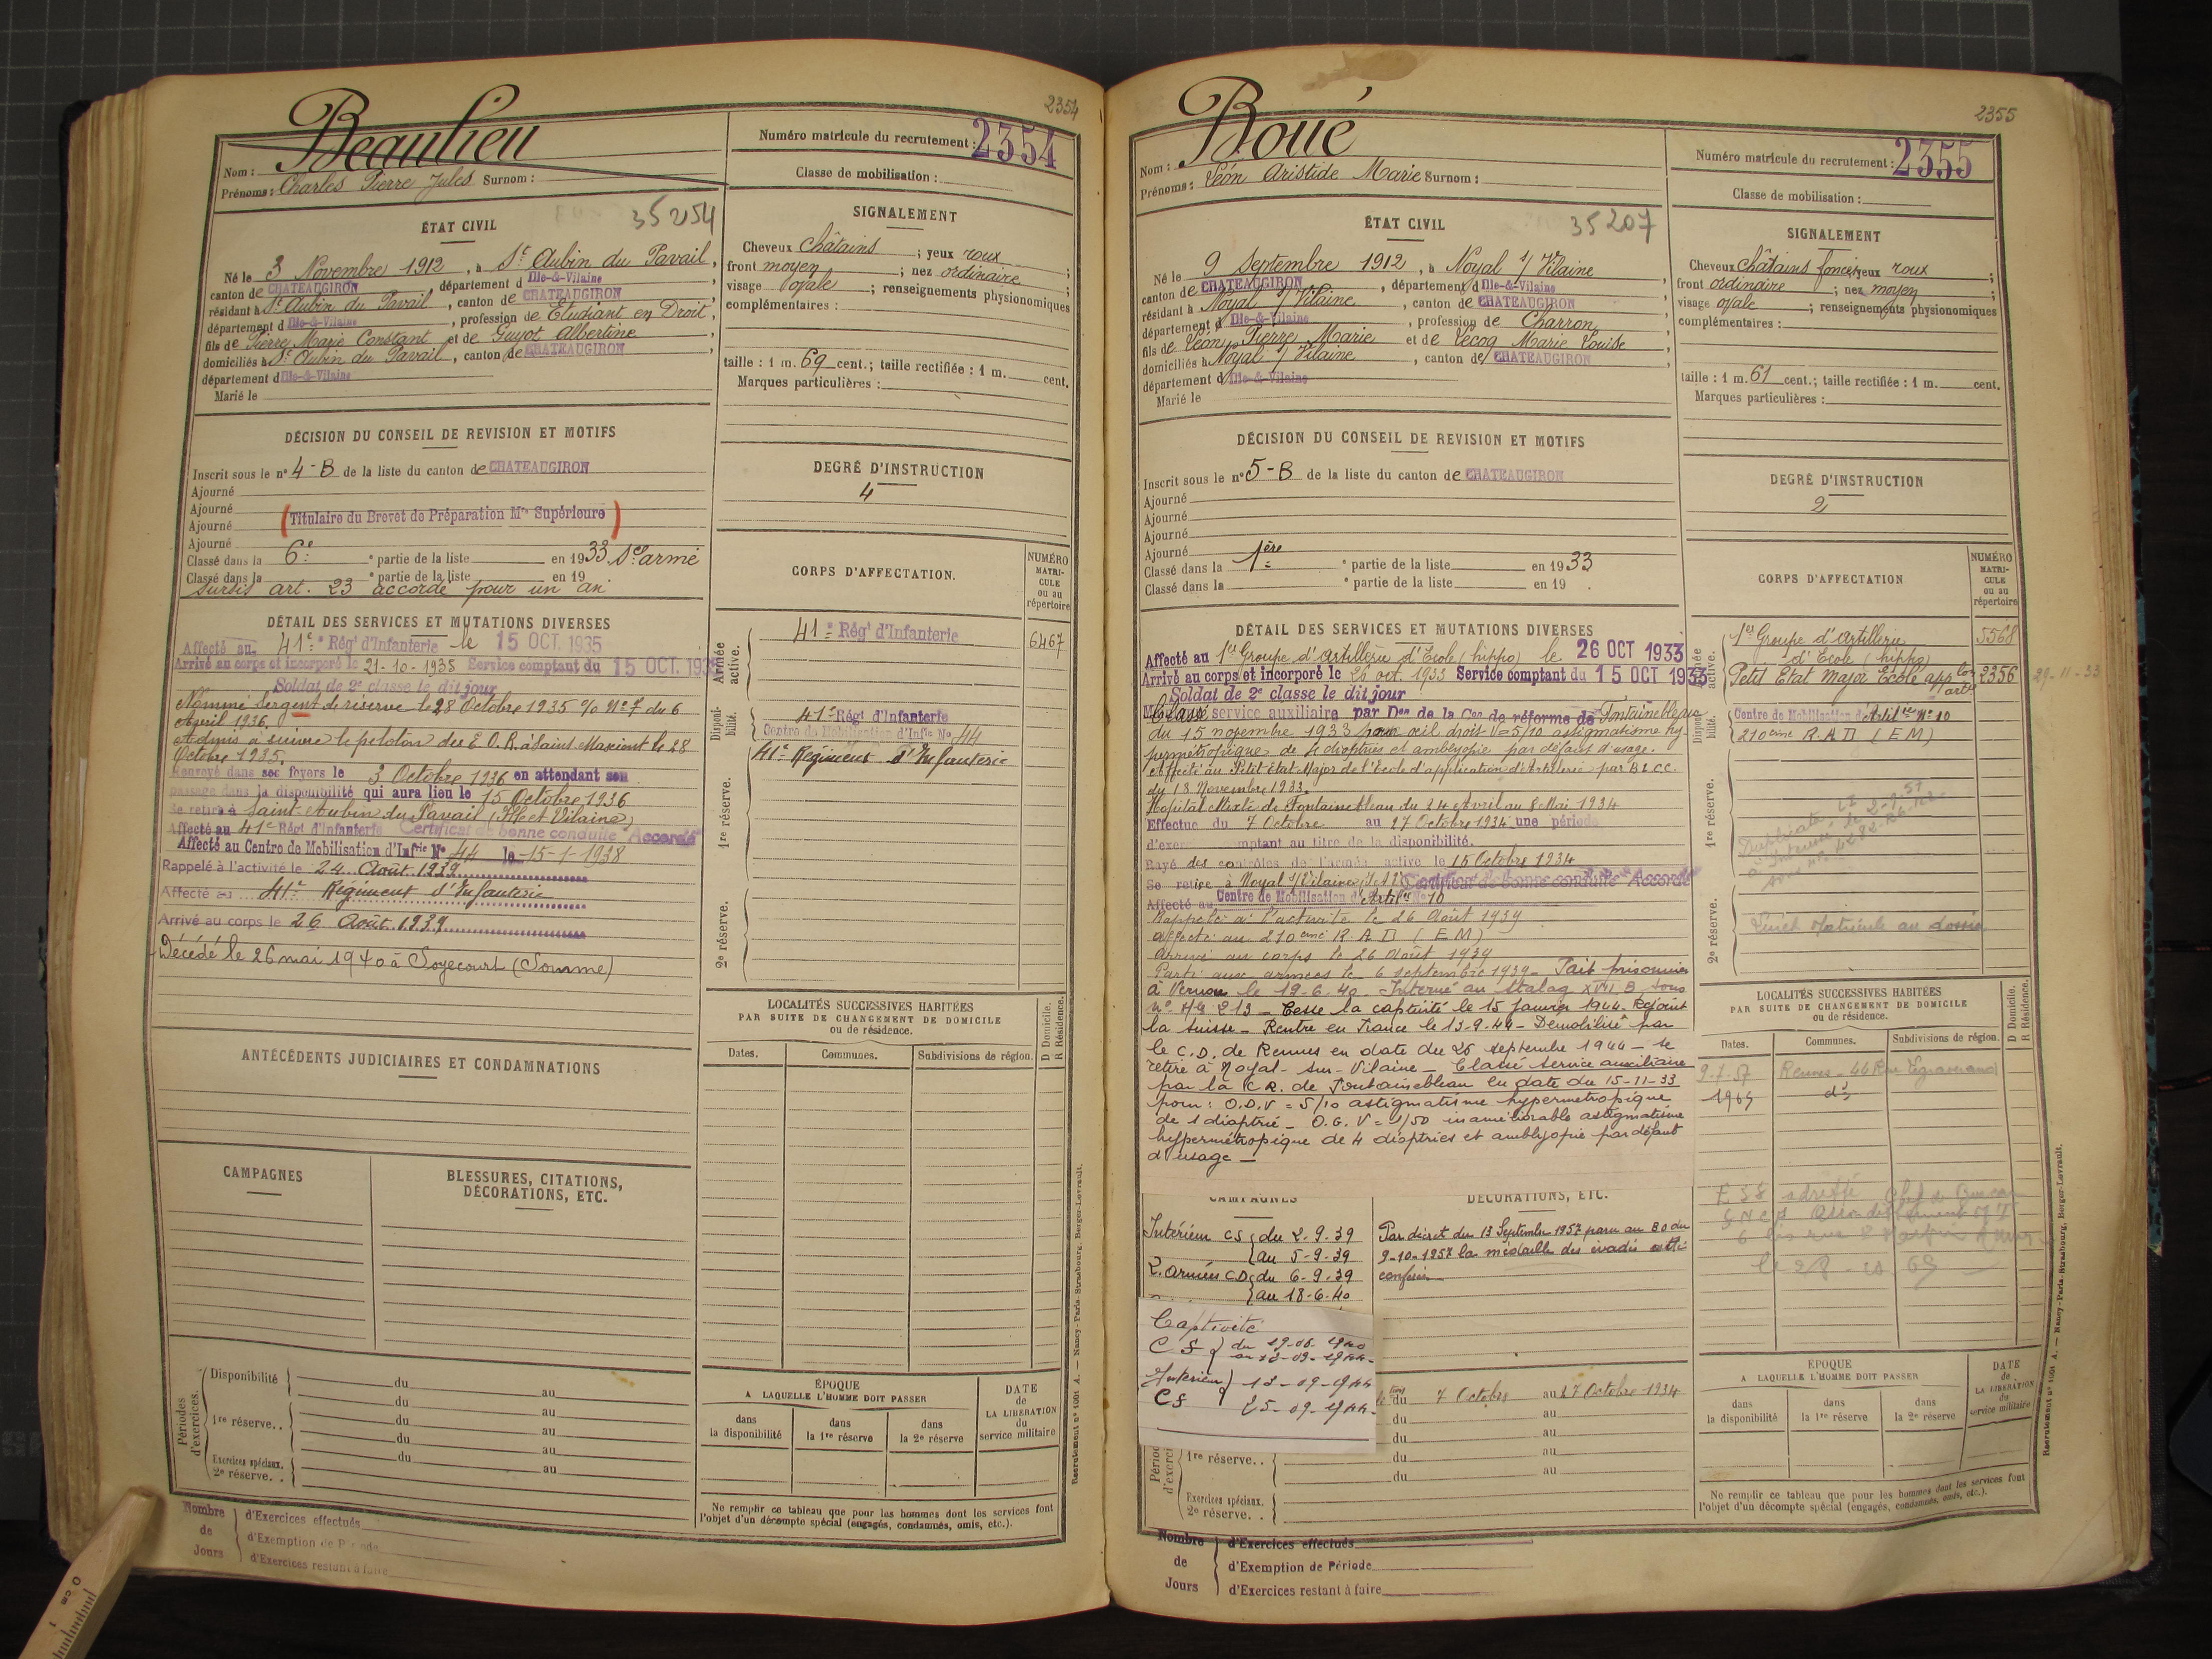 2354
Beaulieu
Nom :
Prénoms : Charles Pierre Jules Surnom :
Numéro matricule du recrutement : 2354
Classe de mobilisation :
ÉTAT CIVIL
35254
Né le 3 Novembre 1912, à St Aubin du Pavail,
canton de CHATEAUGIRON, département d Ille-&-Vilaine
résidant à St Aubin du Pavail, canton de CHATEAUGIRON
département d Ille-&-Vilaine, profession de Etudiant en Droit,
fils de Pierre Marie Constant et de Guyot Albertine
domiciliés à St Aubin du Pavail, canton de CHATEAUGIRON
département d Ille-&-Vilaine
Marié le
SIGNALEMENT
Cheveux châtains ; yeux roux ;
front moyen ; nez ordinaire ;
visage ovale ; renseignements physionomiques
complémentaires :
taille : 1 m. 69 cent.; taille rectifiée : 1 m. cent.
Marques particulières :
DÉCISION DU CONSEIL DE REVISION ET MOTIFS
Inscrit sous le n° 4-B de la liste du canton de CHATEAUGIRON
Ajourné
Ajourné
(Titulaire du Brevet de Préparation Mre Supérieure)
Ajourné
Ajourné
Classé dans la 6e ° partie de la liste en 1933 Sce armé
Classé dans la ° partie de la liste en 19
sursis art. 23 accordé pour un an
DEGRÉ D'INSTRUCTION
4
DÉTAIL DES SERVICES ET MUTATIONS DIVERSES
Affecté au 41e Régt d'Infanterie le 15 OCT. 1935
Arrivé au corps et incorporé le 21-10-1935 Service comptant du 15 OCT. 1935
Soldat de 2e classe le dit jour
Nommé Sergent de réserve le 28 Octobre 1935 % N° 7 du 6
Avril 1936.
Admis à suivre le peloton des E.O.R. à Saint Maixent le 28
Octobre 1935.
Renvoyé dans ses foyers le 3 Octobre 1936 en attendant son
passage dans la disponibilité qui aura lieu le 15 Octobre 1936
Se retire à Saint-Aubin du Pavail (Ille et Vilaine)
Affecté au 41e Régt d'Infanterie Certificat de bonne conduite Accordé
Affecté au Centre de Mobilisation d'Infrie N° 44 le 15-1-1938
Rappelé à l'activité le 24 Août 1939
Affecté au 41e Régiment d'Infanterie
Arrivé au corps le 26 Août 1939
Décédé le 26 mai 1940 à Soyecourt (Somme)
CORPS D'AFFECTATION.
NUMÉRO MATRICULE ou au répertoire
Armée active.
41e Régt d'Infanterie
6467
Disponibilité.
41e Régt d'Infanterie
Centre de Mobilisation d'Infie No 44
1re réserve.
41e Régiment d'Infanterie
2e réserve.
ANTÉCÉDENTS JUDICIAIRES ET CONDAMNATIONS
CAMPAGNES
BLESSURES, CITATIONS,
DÉCORATIONS, ETC.
LOCALITÉS SUCCESSIVES HABITÉES
PAR SUITE DE CHANGEMENT DE DOMICILE
ou de résidence.
D Domicile.
R Résidence.
Dates.
Communes.
Subdivisions de région.
Périodes d'exercices.
Disponibilité du au
du au
1re réserve. . du au
du au
Exercices spéciaux. du au
2e réserve. .
ÉPOQUE
A LAQUELLE L'HOMME DOIT PASSER
dans la disponibilité
dans la 1re réserve
dans la 2e réserve
DATE de LA LIBÉRATION du service militaire
Ne remplir ce tableau que pour les hommes dont les services font
l'objet d'un décompte spécial (engagés, condamnés, omis, etc.).
Nombre de Jours
d'Exercices effectués
d'Exemption de Période
d'Exercices restant à faire
Recrutement n° 4001 A. — Nancy-Paris-Strasbourg, Berger-Levrault.
2355
Boué
Nom :
Prénoms : Léon Aristide Marie Surnom :
Numéro matricule du recrutement : 2355
Classe de mobilisation :
ÉTAT CIVIL
35207
Né le 9 Septembre 1912, à Noyal s/ Vilaine
canton de CHATEAUGIRON, département d Ille-&-Vilaine
résidant à Noyal s/ Vilaine, canton de CHATEAUGIRON
département d Ille-&-Vilaine, profession de Charron,
fils de Léon Pierre Marie et de Lecoq Marie Louise
domiciliés à Noyal s/ Vilaine, canton de CHATEAUGIRON
département d Ille-&-Vilaine
Marié le
SIGNALEMENT
Cheveux châtains foncés; yeux roux ;
front ordinaire ; nez moyen ;
visage ovale ; renseignements physionomiques
complémentaires :
taille : 1 m. 61 cent.; taille rectifiée : 1 m. cent.
Marques particulières :
DÉCISION DU CONSEIL DE REVISION ET MOTIFS
Inscrit sous le n° 5-B de la liste du canton de CHATEAUGIRON
Ajourné
Ajourné
Ajourné
Ajourné
Classé dans la 1ère ° partie de la liste en 1933
Classé dans la ° partie de la liste en 19
DEGRÉ D'INSTRUCTION
2
DÉTAIL DES SERVICES ET MUTATIONS DIVERSES
Affecté au 1er Groupe d'Artillerie d'Ecole (hippo) le 26 OCT 1933
Arrivé au corps et incorporé le 26 oct. 1933 Service comptant du 15 OCT 1933
Soldat de 2e classe le dit jour
Classé service auxiliaire par Don de la Con de réforme de Fontainebleau
du 15 novembre 1933 pour œil droit V=5/10 astigmatisme hy-
permétropique de 4 dioptries et amblyopie par défaut d'usage.
Affecté au Petit Etat Major de l'Ecole d'application d'Artillerie par B.L.C.C.
du 18 Novembre 1933.
Hôpital Mixte de Fontainebleau du 24 Avril au 8 Mai 1934
Effectue du 7 Octobre au 27 Octobre 1934 une période
d'exer mptant au titre de la disponibilité.
Rayé des contrôles de l'armée active le 15 Octobre 1934
Se retire à Noyal s/Vilaine (I. & V.) Certificat de bonne conduite Accordé
Affecté au Centre de Mobilisation d'Artillie No 10
Rappelé à l'activité le 26 Août 1939
affecté au 210ème R.A.D (EM)
arrivé au corps le 26 Août 1939
Parti aux armées le 6 septembre 1939 - Fait prisonnier
à Vernou le 19-6-40. Interné au Stalag XVII B, sous
n° 44 213 - Cesse la captivité le 15 Janvier 1944. Rejoint
la Suisse - Rentre en France le 13-9-44 - Démobilisé par
le C.D. de Rennes en date du 25 septembre 1944 - se
retire à Noyal-sur-Vilaine - Classé service auxiliaire
par la C.R. de Fontainebleau en date du 15-11-33
pour : O.D.V = 5/10 astigmatisme hypermétropique
de 1 dioptrie - O.G. V = 1/50 inaméliorable astigmatisme
hypermétropique de 4 dioptries et amblyopie par défaut
d'usage -
CORPS D'AFFECTATION
NUMÉRO MATRICULE ou au répertoire
Armée active.
1er Groupe d'Artillerie 5568
d'Ecole (hippo)
Petit Etat Major Ecole appon 2356 29-11-33
artie
Disponibilité.
Centre de Mobilisation d'Artillie No 10
210ème R.A.D (EM)
1re réserve.
Duplicata
2e réserve.
Livret Matricule au dossier
LOCALITÉS SUCCESSIVES HABITÉES
PAR SUITE DE CHANGEMENT DE DOMICILE
ou de résidence.
D Domicile.
R Résidence.
Dates.
Communes.
Subdivisions de région.
9.7.57 Rennes - 44 Rue
1965 d°
CAMPAGNES
DÉCORATIONS, ETC.
Intérieur CS du 2-9-39
au 5-9-39
Z. Armées CD du 6-9-39
au 18-6-40
Captivité
CS du 19-06-1940
au 12-09-1944
Intérieur 13-09-1944
CS 25-09-1944
Par décret du 13 Septembre 1957 paru au BO du
9-10-1957 la médaille des évadés a été
conférée
du 7 Octobre au 27 Octobre 1934
du au
du au
1re réserve. . du au
du au
Exercices spéciaux.
2e réserve. .
ÉPOQUE
A LAQUELLE L'HOMME DOIT PASSER
dans la disponibilité
dans la 1re réserve
dans la 2e réserve
DATE de LA LIBÉRATION du service militaire
Ne remplir ce tableau que pour les hommes dont les services font
l'objet d'un décompte spécial (engagés, condamnés, omis, etc.).
Nombre de Jours
d'Exercices effectués
d'Exemption de Période
d'Exercices restant à faire
Recrutement n° 4001 A. — Nancy-Paris-Strasbourg, Berger-Levrault.
0 cm 1